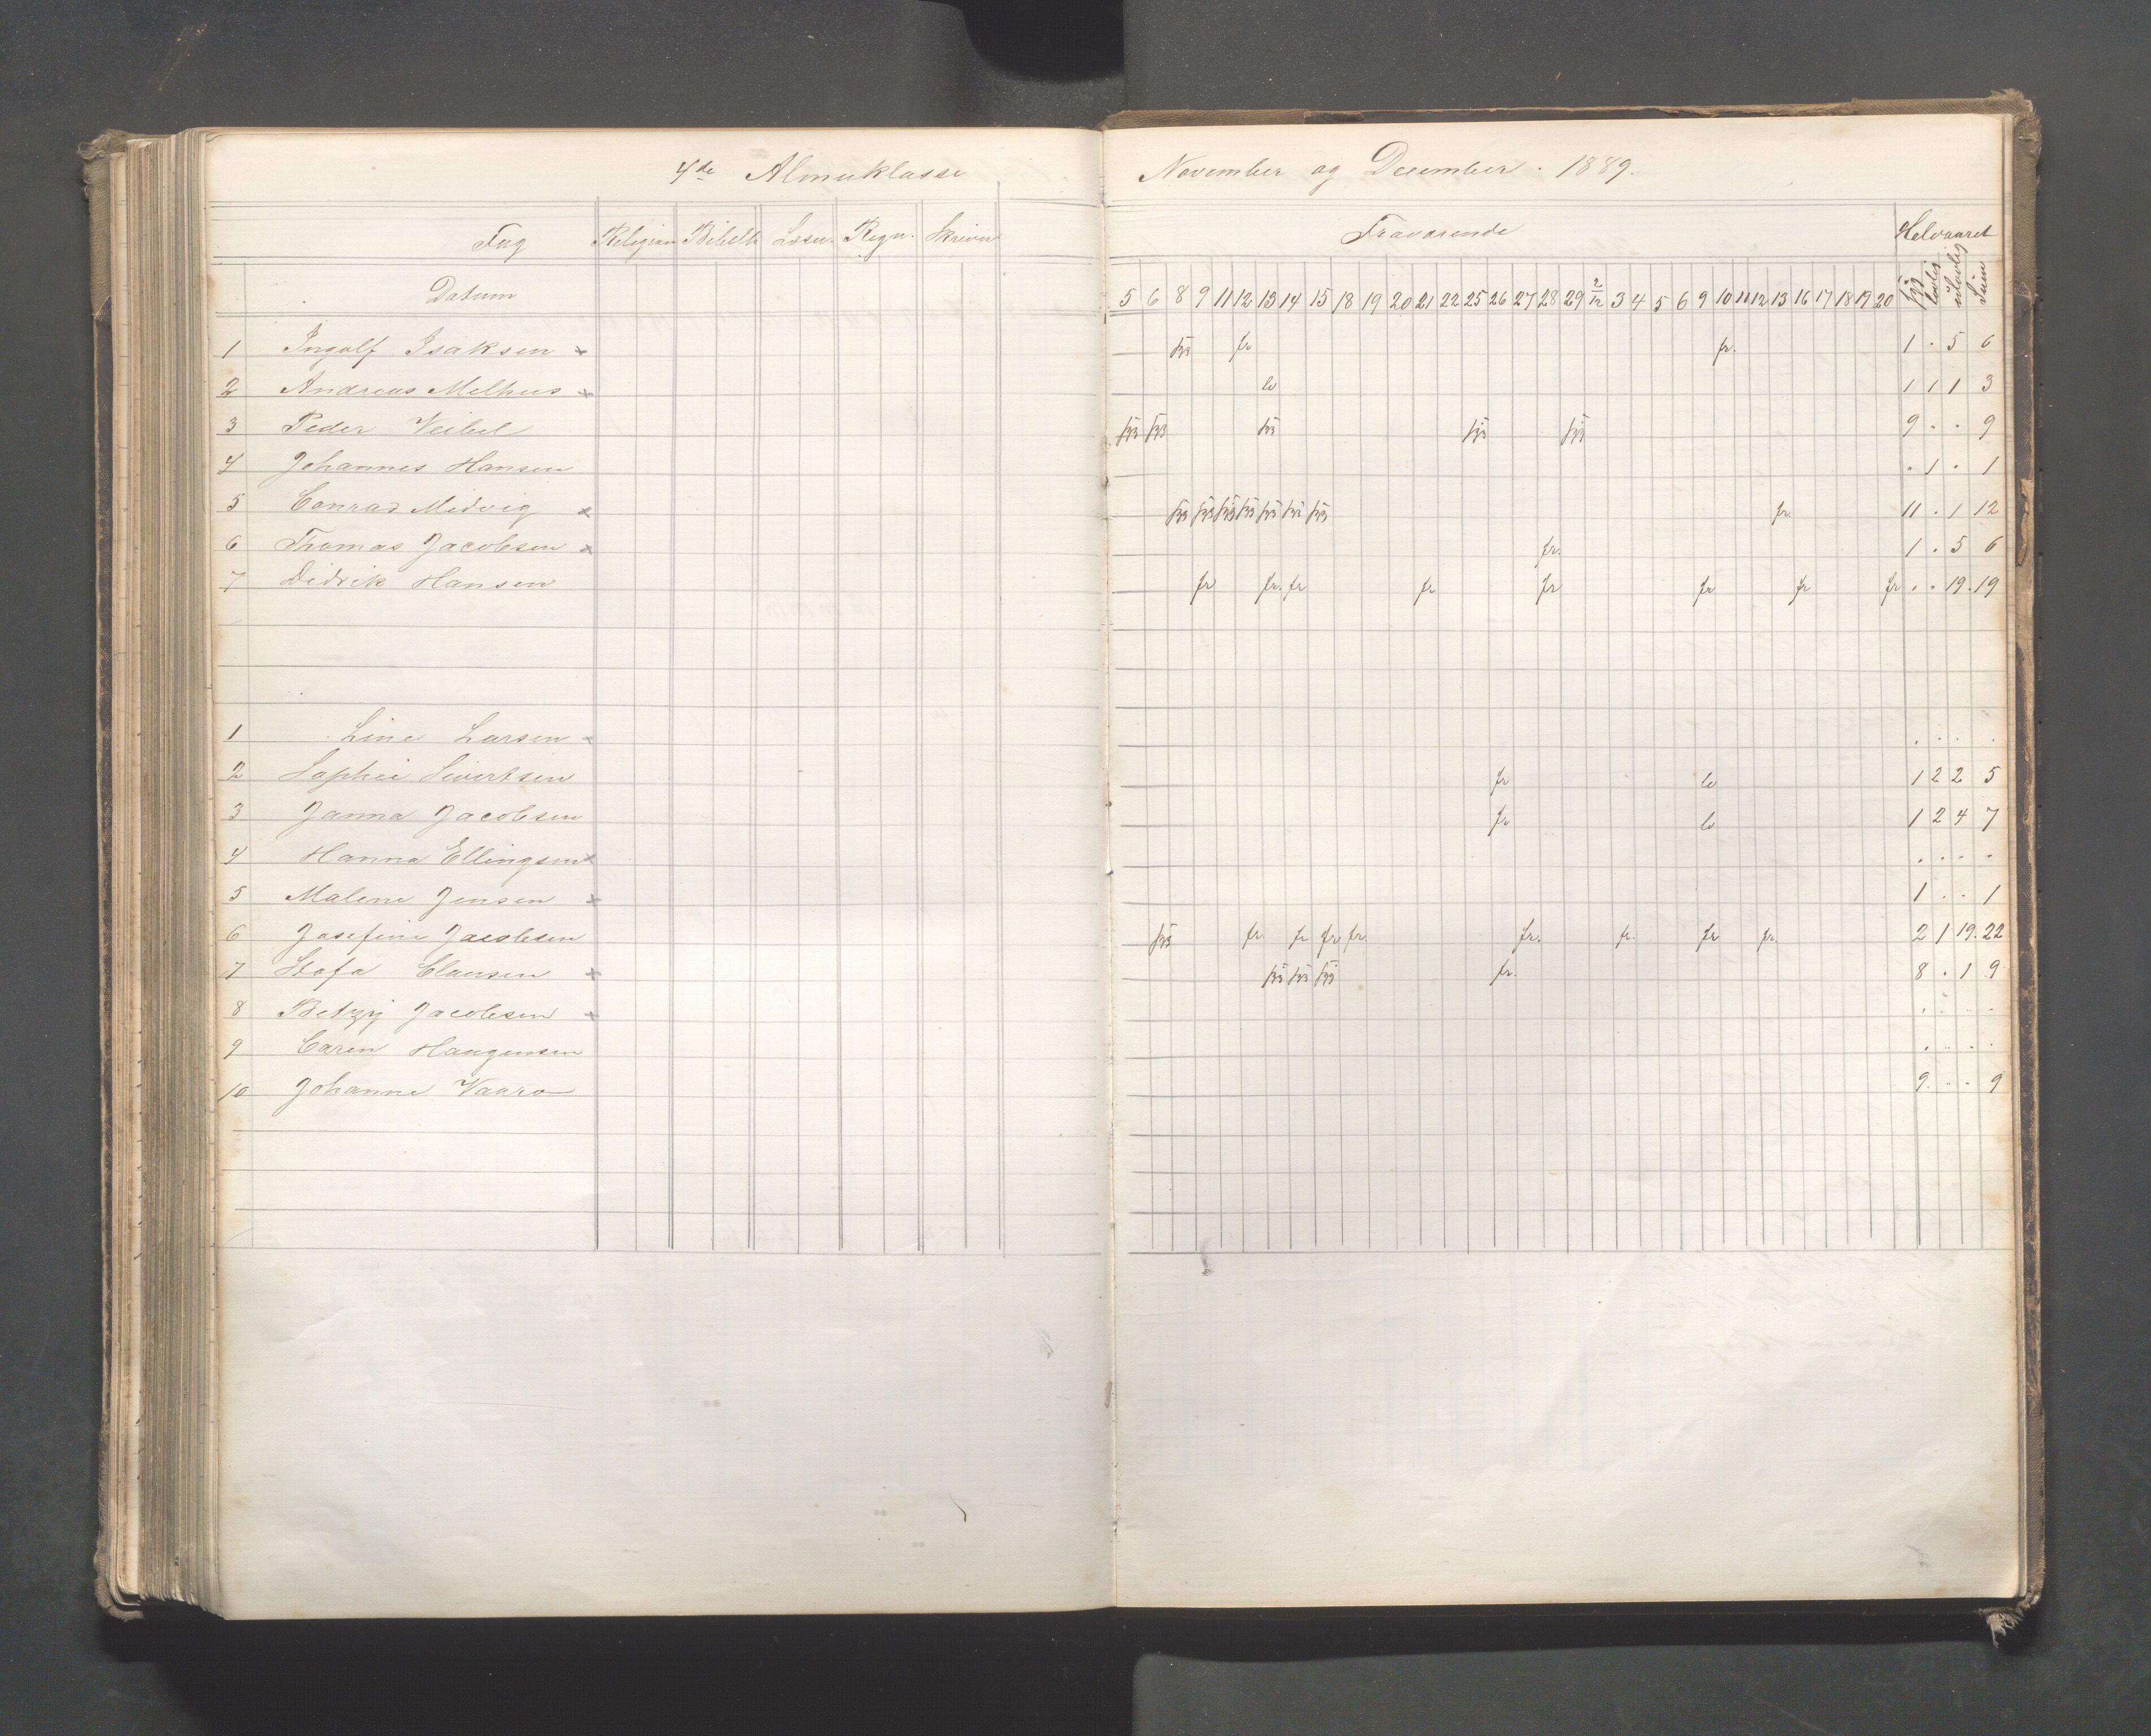 4de Almueklasse
November og December. 1889.
Fag Religion Bibelh Læsn. Regn. Skrivn
Fraværende Halvaaret
Datum
5 6 8 9 11 12 13 14 15 18 19 20 21 22 25 26 27 28 29 2/12 3 4 5 6 9 10 11 12 13 16 17 18 19 20 syg lovlig ulovlig Sum
1 Ingolf Isaksen × syg fr fr. 1 . 5 6
2 Andreas Melhus × lo 1 1 1 3
3 Peder Veibel syg syg syg syg syg 9 . . 9
4 Johannes Hansen . 1 . 1
5 Conrad Midvig × syg syg syg syg syg syg syg fr. 11 . 1 12
6 Thomas Jacobsen × fr. 1 . 5 6
7 Didrik Hansen fr fr. fr fr fr fr fr fr . . 19. 19
1 Line Larsen × . . . .
2 Sophie Sivertsen fr lo 1 2 2 5
3 Janna Jacobsen fr lo 1 2 4 7
4 Hanna Ellingsen × . . . .
5 Malene Jensen × 1 . . 1
6 Josefine Jacobsen syg fr. fr fr fr. fr. fr. fr fr. 2 1 19. 22
7 Clausen × syg syg syg fr. 8 . 1 9
8 Betzy Jacobsen × . . . .
9 Caren Haagensen . . . .
10 Johanne Vaaro 9 . . 9